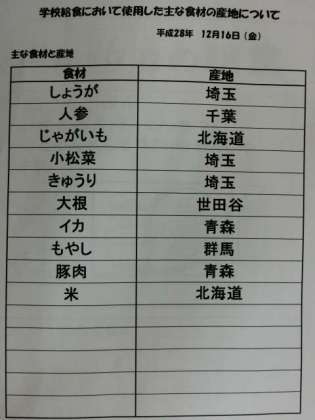 学校給食において使用した主な食材の産地について
平成28年 12月16日(金)
主な食材と産地
食材 産地
しょうが 埼玉
人参 千葉
じゃがいも 北海道
小松菜 埼玉
きゅうり 埼玉
大根 世田谷
イカ 青森
もやし 群馬
豚肉 青森
米 北海道